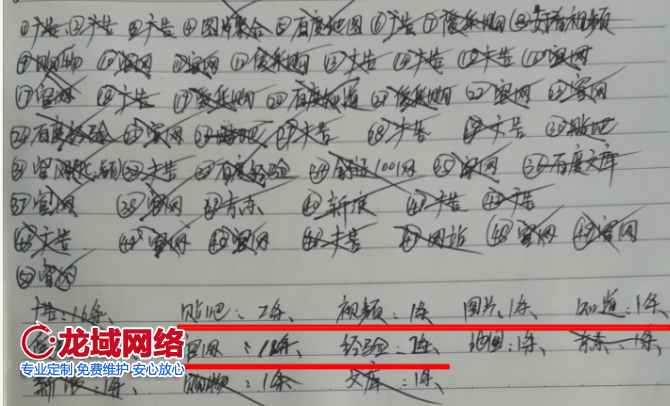 ①广告 ②广告 ③广告 ④图片聚合 ⑤百度地图 ⑥广告 ⑦爱采购 ⑧好看视频
⑨购物 ⑩官网 ⑪官网 ⑫爱采购 ⑬广告 ⑭广告 ⑮广告 ⑯官网
⑰官网 ⑱广告 ⑲爱采购 ⑳百度知道 ㉑爱采购 ㉒官网 ㉓官网
㉔百度经验 ㉕官网 ㉖贴吧 ㉗广告 ㉘广告 ㉙广告 ㉚贴吧
㉛官网 ㉜广告 ㉝百度经验 ㉞1001网 ㉟官网 ㊱百度文库
㊲官网 ㊳官网 ㊴京东 ㊵新浪 ㊶广告 ㊷广告
㊸广告 ㊹官网 ㊺官网 ㊻广告 ㊼网站 ㊽官网 ㊾官网
㊿官网
广告:16条、 贴吧:2条、 视频:1条 图片:1条、 知道:1条、
官网: 经验:2条、 地图:1条、 京东:1条、
新浪:1条、 购物:1条 文库:1条、
龙域网络
专业定制 免费维护 安心放心